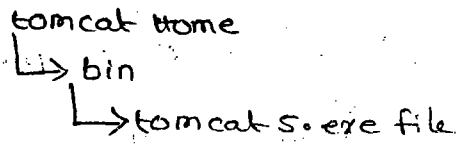 tomcat Home
bin
tomcat 5.exe file